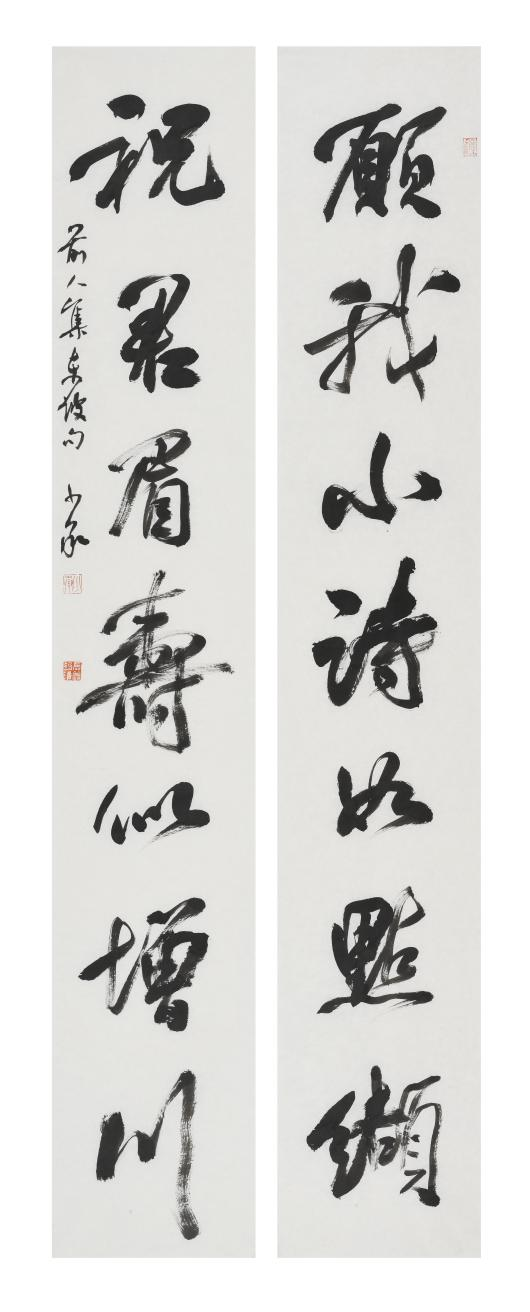 願我小詩如點纈
祝君眉壽似增川
前人集東坡句